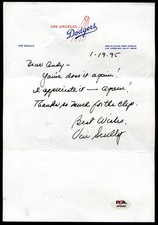 LOS ANGELES
Dodgers
VIN SCULLY
1-19-95
Dear Andy—
You've done it again!
I appreciate it — again!
Thanks so much for the clips.
Best Wishes
Vin Scully
PSA